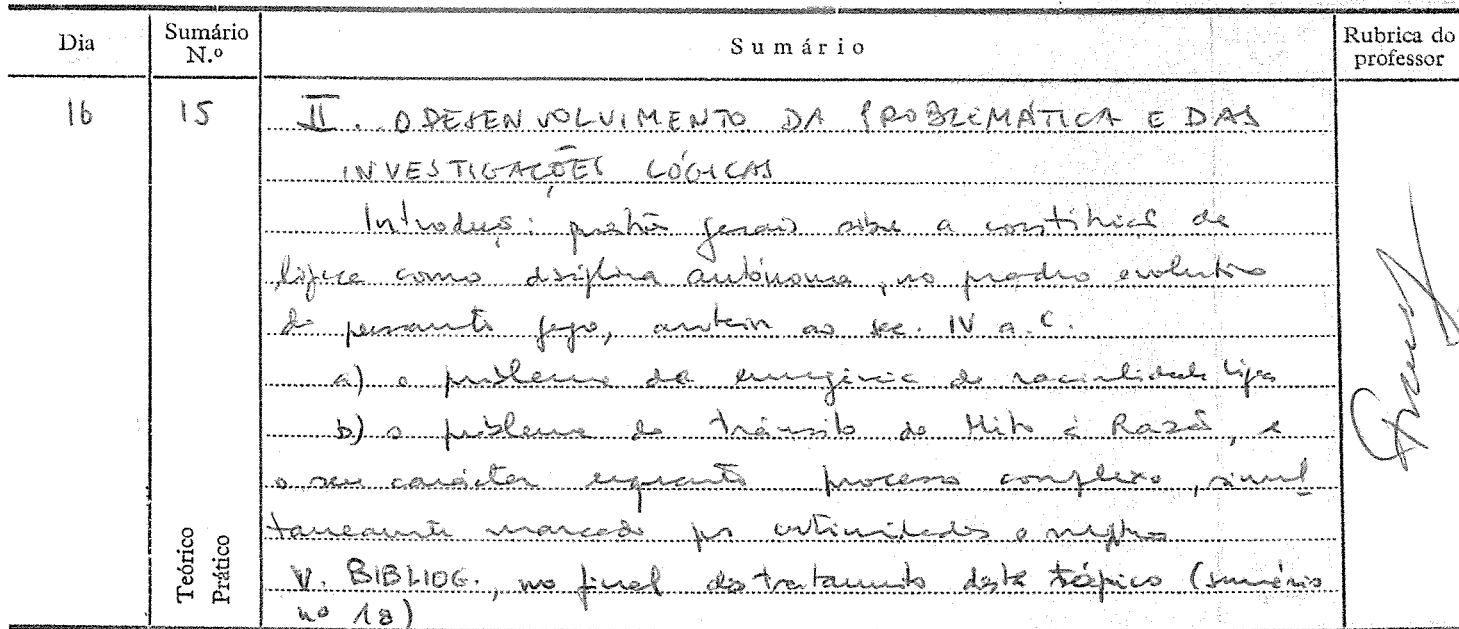 Dia Sumário N.º Sumário Rubrica do professor
16 15 II. O DESENVOLVIMENTO DA PROBLEMÁTICA E DAS
INVESTIGAÇÕES LÓGICAS
Introdução: questões gerais sobre a constituição da
lógica como disciplina autónoma, no quadro evolutivo
do pensamento grego, anterior ao séc. IV a.C.
a) o problema da emergência da racionalidade lógica
b) o problema do trânsito do Mito à Razão, e
o seu carácter enquanto processo complexo, simul
taneamente marcado por continuidades e
V. BIBLIOG., no final do tratamento deste tópico (sumário
nº 18)
Teórico
Prático